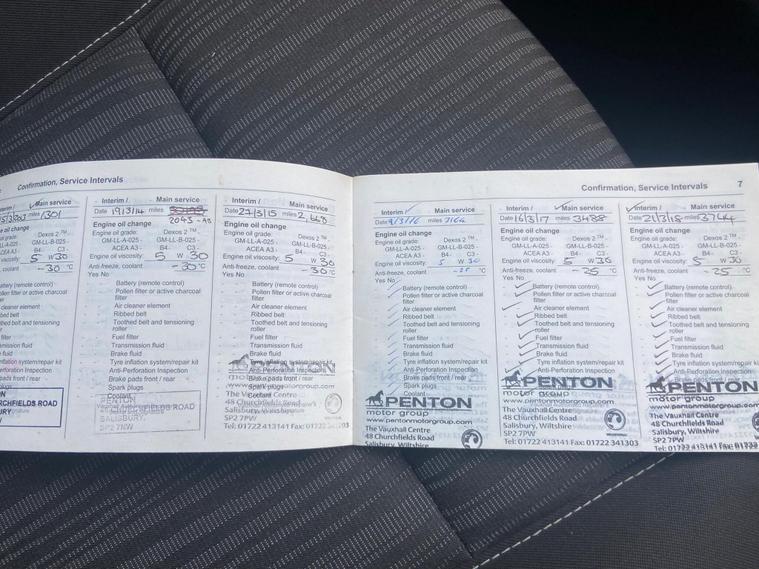 Confirmation, Service Intervals
Main service
miles 1301
oil change
grade:
Dexos 2 ™ -
GM-LL-B-025 -
B4- C3 -
5 W30
coolant -30 °C
Battery (remote control)
Pollen filter or active charcoal
filter
Air cleaner element
Ribbed belt
Toothed belt and tensioning
roller
Fuel filter
Transmission fluid
Brake fluid
Tyre inflation system/repair kit
Anti-Perforation Inspection
Brake pads front / rear
CHFIELDS ROAD
Interim / Main service
Date 19/3/14 miles
2045
Engine oil change
Engine oil grade: Dexos 2 ™ -
GM-LL-A-025 - GM-LL-B-025 -
ACEA A3 - B4- C3 -
Engine oil viscosity: 5 W 30
Anti-freeze, coolant -30 °C
Yes No
Battery (remote control)
Pollen filter or active charcoal
filter
Air cleaner element
Ribbed belt
Toothed belt and tensioning
roller
Fuel filter
Transmission fluid
Brake fluid
Tyre inflation system/repair kit
Anti-Perforation Inspection
Brake pads front / rear
Spark plugs
Coolant
PENTON
CHURCHFIELDS ROAD
SALISBURY
SP2 7NW
Interim / Main service
Date 27/5/15 miles 2,648
Engine oil change
Engine oil grade: Dexos 2 ™ -
GM-LL-A-025 - GM-LL-B-025 -
ACEA A3 - B4- C3 -
Engine oil viscosity: 5 W 30
Anti-freeze, coolant 30 °C
Yes No
Battery (remote control)
Pollen filter or active charcoal
filter
Air cleaner element
Ribbed belt
Toothed belt and tensioning
roller
Fuel filter
Transmission fluid
Brake fluid
Tyre inflation system/repair kit
Anti-Perforation Inspection
Brake pads front / rear
Spark plugs
Coolant
The Vauxhall Centre
48 Churchfields Road
Salisbury, Wiltshire
SP2 7PW
Tel: 01722 413141 Fax: 01722 341303
Confirmation, Service Intervals 7
Interim / Main service
Date 9/3/16 miles 3164
Engine oil change
Engine oil grade: Dexos 2 ™ -
GM-LL-A-025 - GM-LL-B-025 -
ACEA A3 - B4- C3 -
Engine oil viscosity: 5 W 30
Anti-freeze, coolant -25 °C
Yes No
Battery (remote control)
Pollen filter or active charcoal
filter
Air cleaner element
Ribbed belt
Toothed belt and tensioning
roller
Fuel filter
Transmission fluid
Brake fluid
Tyre inflation system/repair kit
Anti-Perforation Inspection
Brake pads front / rear
Spark plugs
Coolant
PENTON
motor group
www.pentonmotorgroup.com
The Vauxhall Centre
48 Churchfields Road
Salisbury, Wiltshire
Interim / Main service
Date 16/3/17 miles 3488
Engine oil change
Engine oil grade: Dexos 2 ™ -
GM-LL-A-025 - GM-LL-B-025 -
ACEA A3 - B4- C3 -
Engine oil viscosity: 5 W30
Anti-freeze, coolant -25 °C
Yes No
Battery (remote control)
Pollen filter or active charcoal
filter
Air cleaner element
Ribbed belt
Toothed belt and tensioning
roller
Fuel filter
Transmission fluid
Brake fluid
Tyre inflation system/repair kit
Anti-Perforation Inspection
Brake pads front / rear
PENTON
motor group
www.pentonmotorgroup.com
The Vauxhall Centre
48 Churchfields Road
Salisbury, Wiltshire
SP2 7PW
Tel: 01722 413141 Fax: 01722 341303
Interim / Main service
Date 21/3/18 miles 3744
Engine oil change
Engine oil grade: Dexos 2 ™ -
GM-LL-A-025 - GM-LL-B-025 -
ACEA A3 - B4- C3 -
Engine oil viscosity: 5 W 30
Anti-freeze, coolant -25 °C
Yes No
Battery (remote control)
Pollen filter or active charcoal
filter
Air cleaner element
Ribbed belt
Toothed belt and tensioning
roller
Fuel filter
Transmission fluid
Brake fluid
Tyre inflation system/repair kit
Anti-Perforation Inspection
Brake pads front / rear
PENTON
motor group
www.pentonmotorgroup.com
The Vauxhall Centre
48 Churchfields Road
Salisbury, Wiltshire
SP2 7PW
Tel: 01722 413141 Fax: 01722